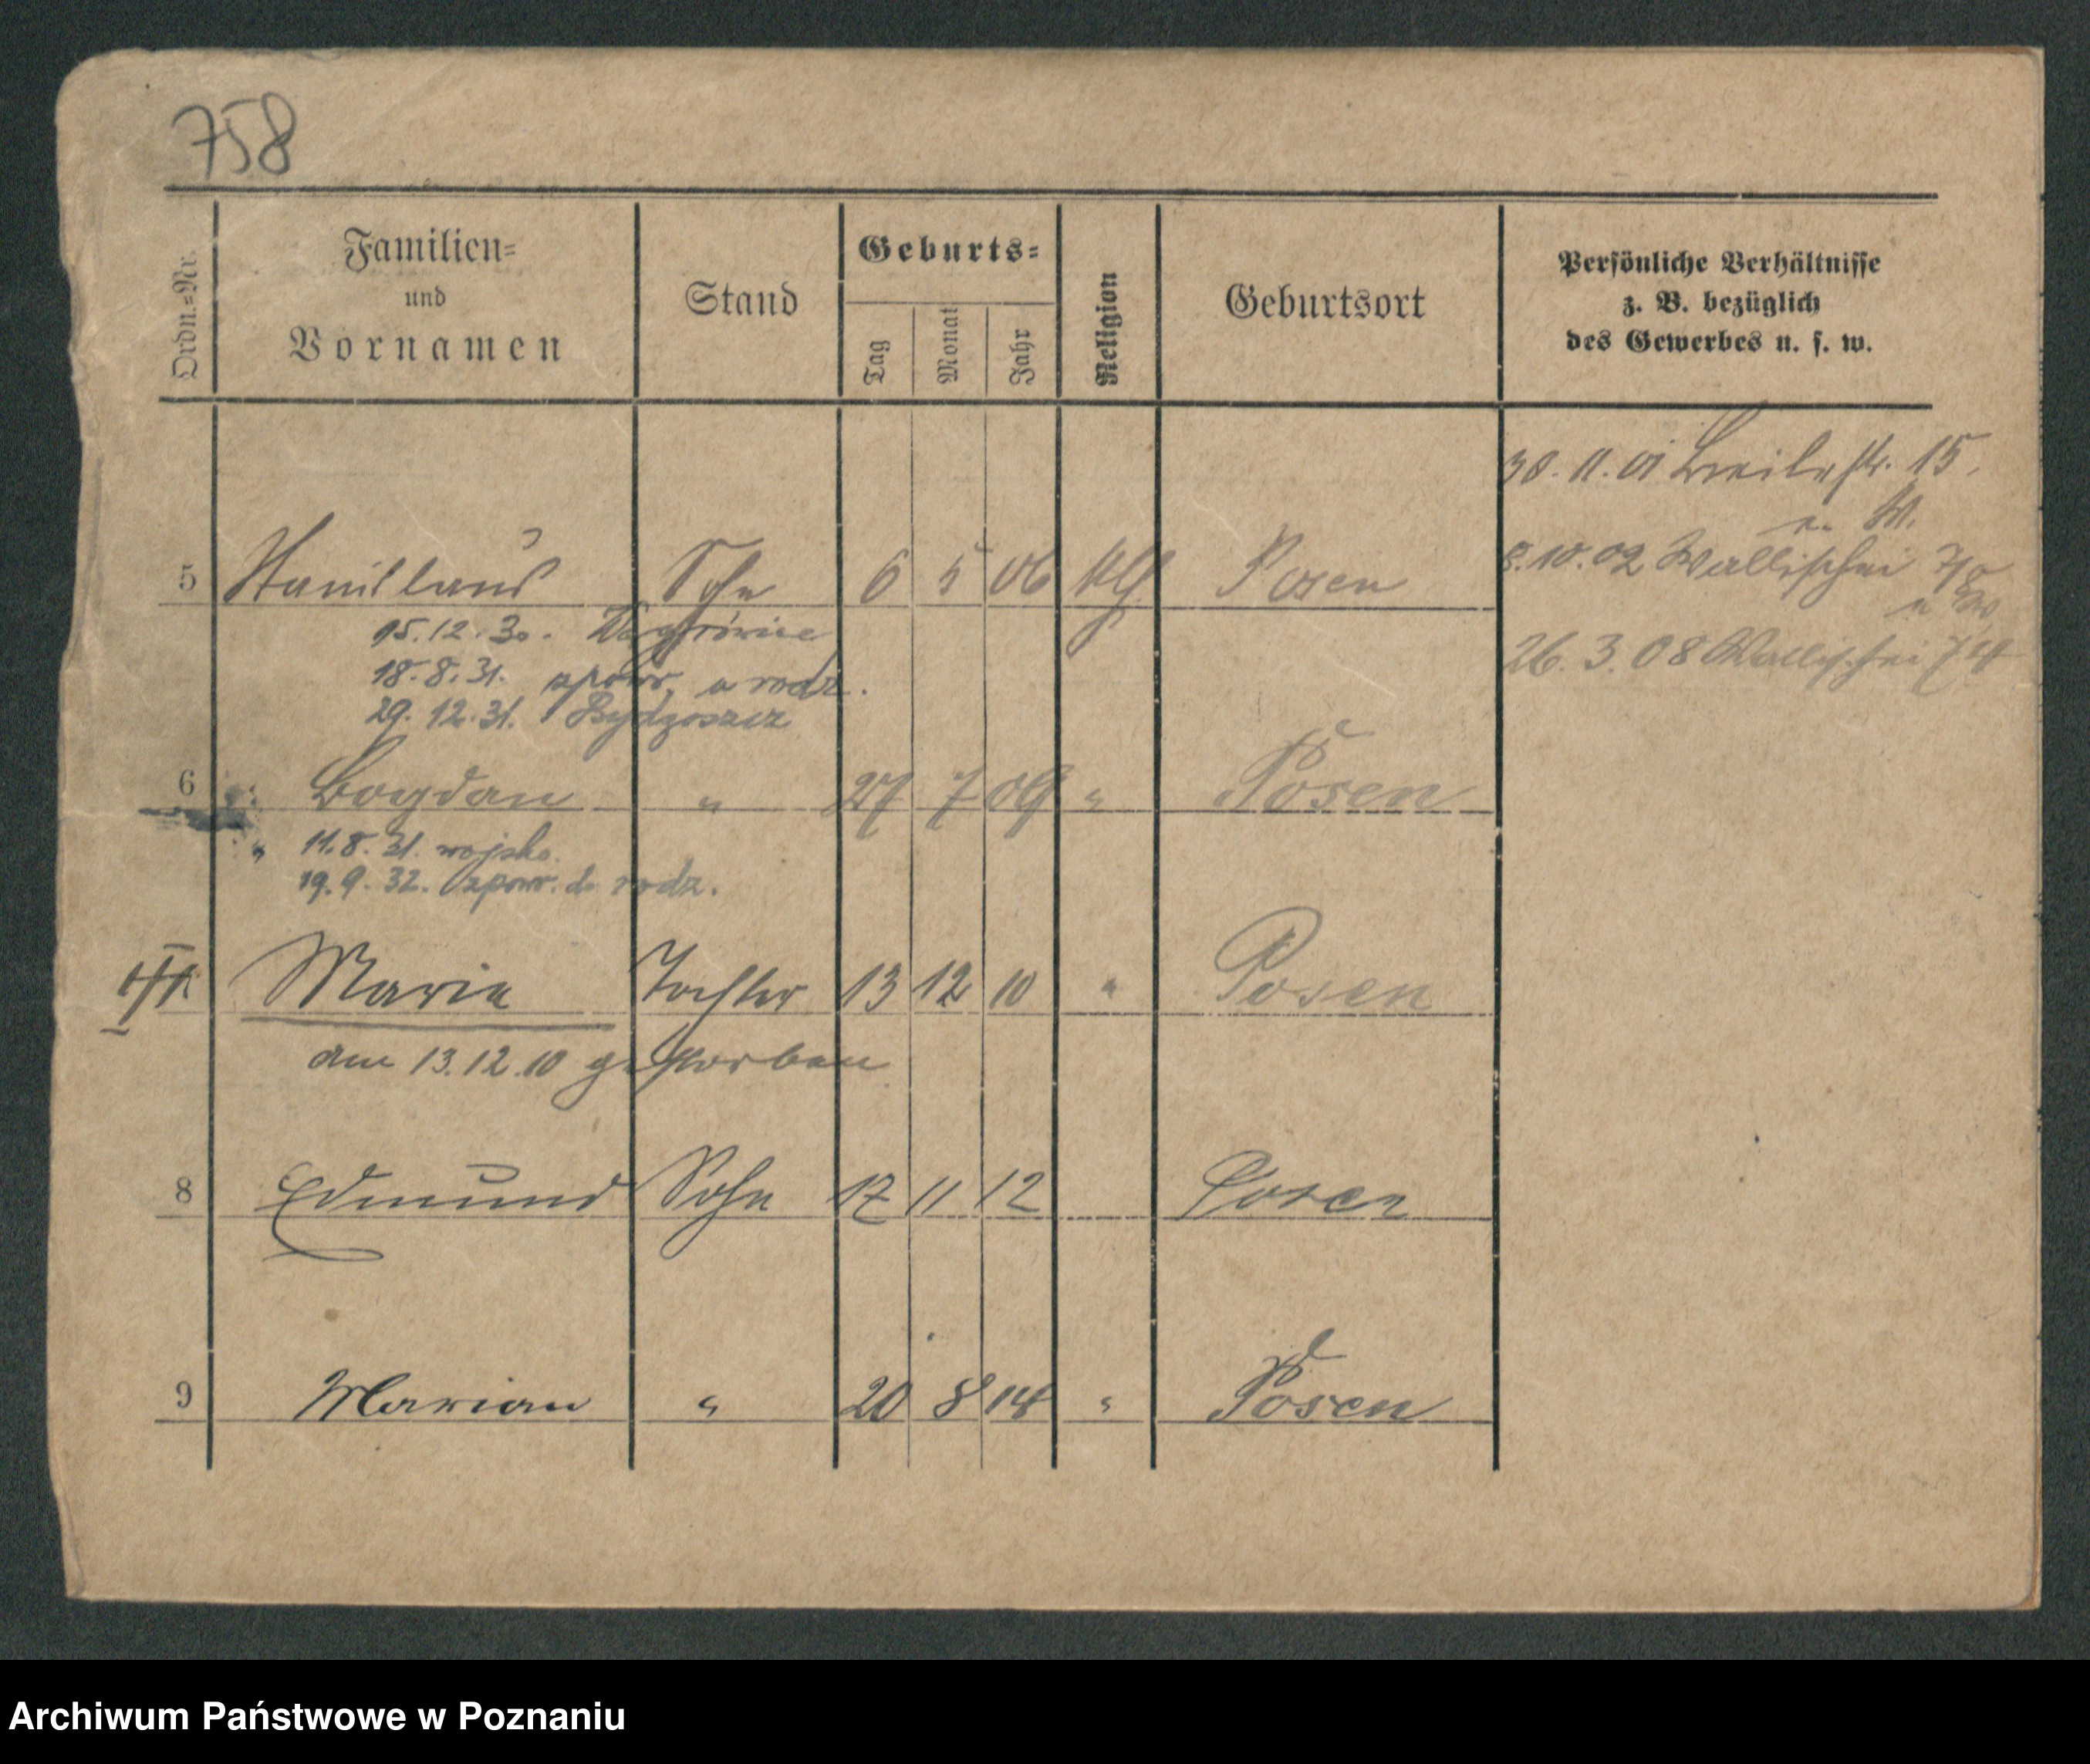 758
Ordn.=Nr.
Familien=
und
Vornamen
Stand
Geburts=
Tag
Monat
Jahr
Religion
Geburtsort
Persönliche Verhältnisse
z. B. bezüglich
des Gewerbes u. s. w.
30. 11. 01 Breitestr. 15.
8. 10. 02 Wallischei 7/8
26. 3. 08 Wallischei 74
5 Stanislaus Sohn 6 5 06 klg Posen
15. 12. 30. Wągrówiec
18. 8. 31. zpowr. u rodz.
29. 12. 31. Bydgoszcz
6 Bogdan " 27 7 09 " Posen
" 11. 8. 31. wojsko.
19. 9. 32. zpowr. do rodz.
Marie Tochter 13 12 10 " Posen
am 13. 12. 10 gestorben
8 Edmund Sohn 17 11 12 Posen
9 Marian " 20 8 14 " Posen
Archiwum Państwowe w Poznaniu